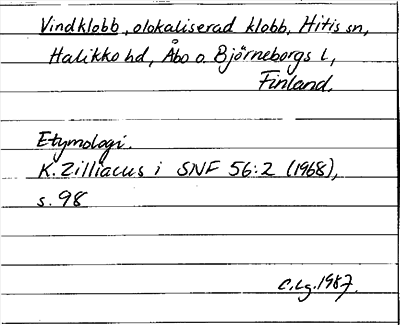 Vindklobb, olokaliserad klobb, Hitis sn,
Halikko hd, Åbo o. Björneborgs l,
Finland.
Etymologi.
K. Zilliacus i SNF 56:2 (1968),
s. 98
C.Lg. 1987.